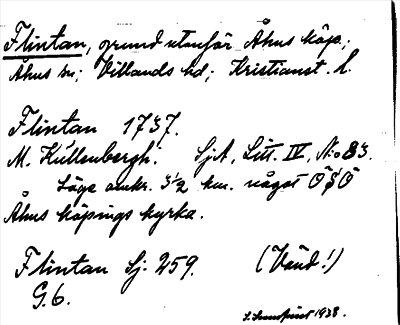 Flintan, grund utanför Åhus köp.;
Åhus sn; Villands hd; Kristianst. l.
Flintan 1737.
M. Kullenbergh. SjA, Litt. IV, No 83.
Läge omkr. 3 1/2 km. något ÖSÖ
Åhus köpings kyrka.
Flintan Sj. 259. (Vänd!)
G. 6.
1938.